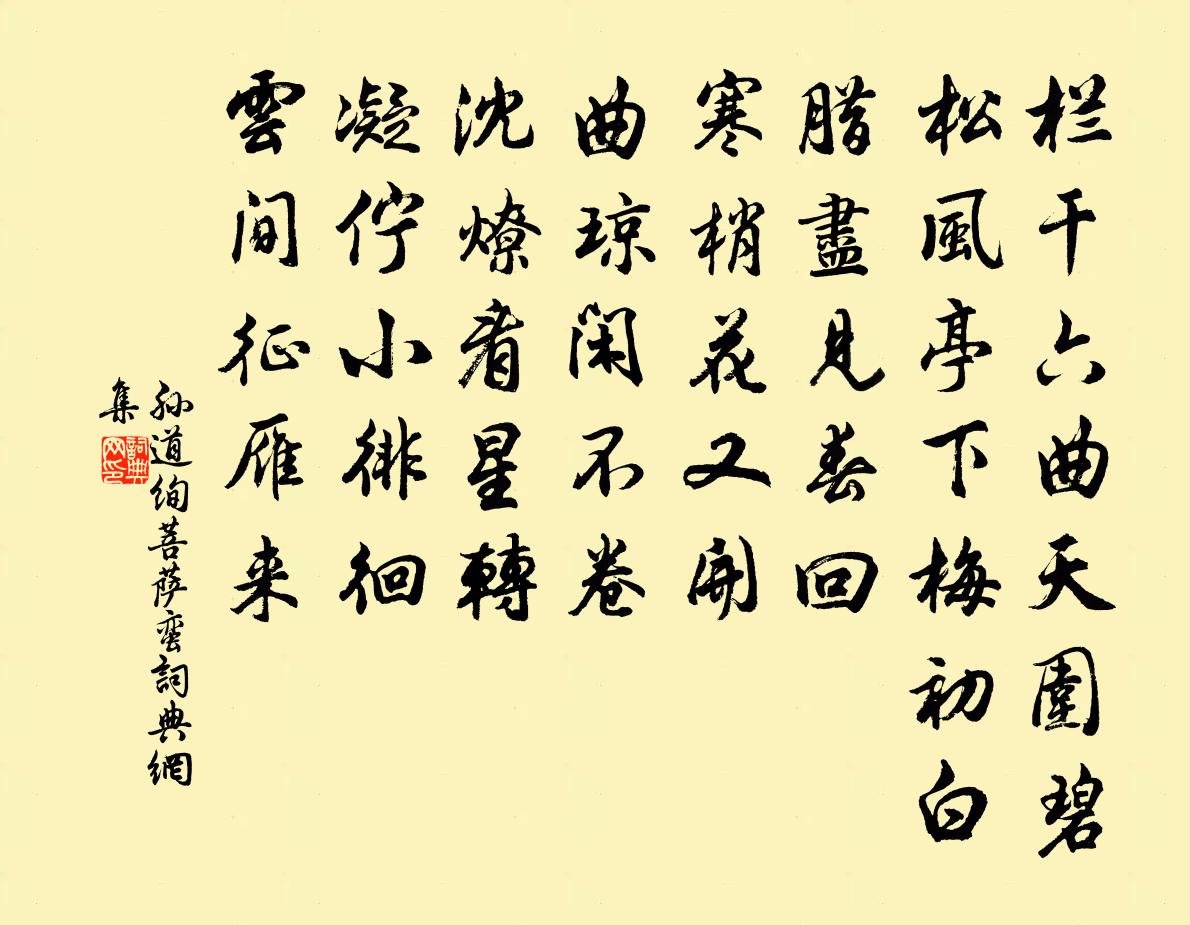 栏干六曲天圍碧
松風亭下梅初白
腊盡見春回
寒梢花又開
曲琼閑不卷
沈燎看星轉
凝伫小徘徊
雲間征雁来
孙道绚菩萨蛮詞典網
集
詞典網印